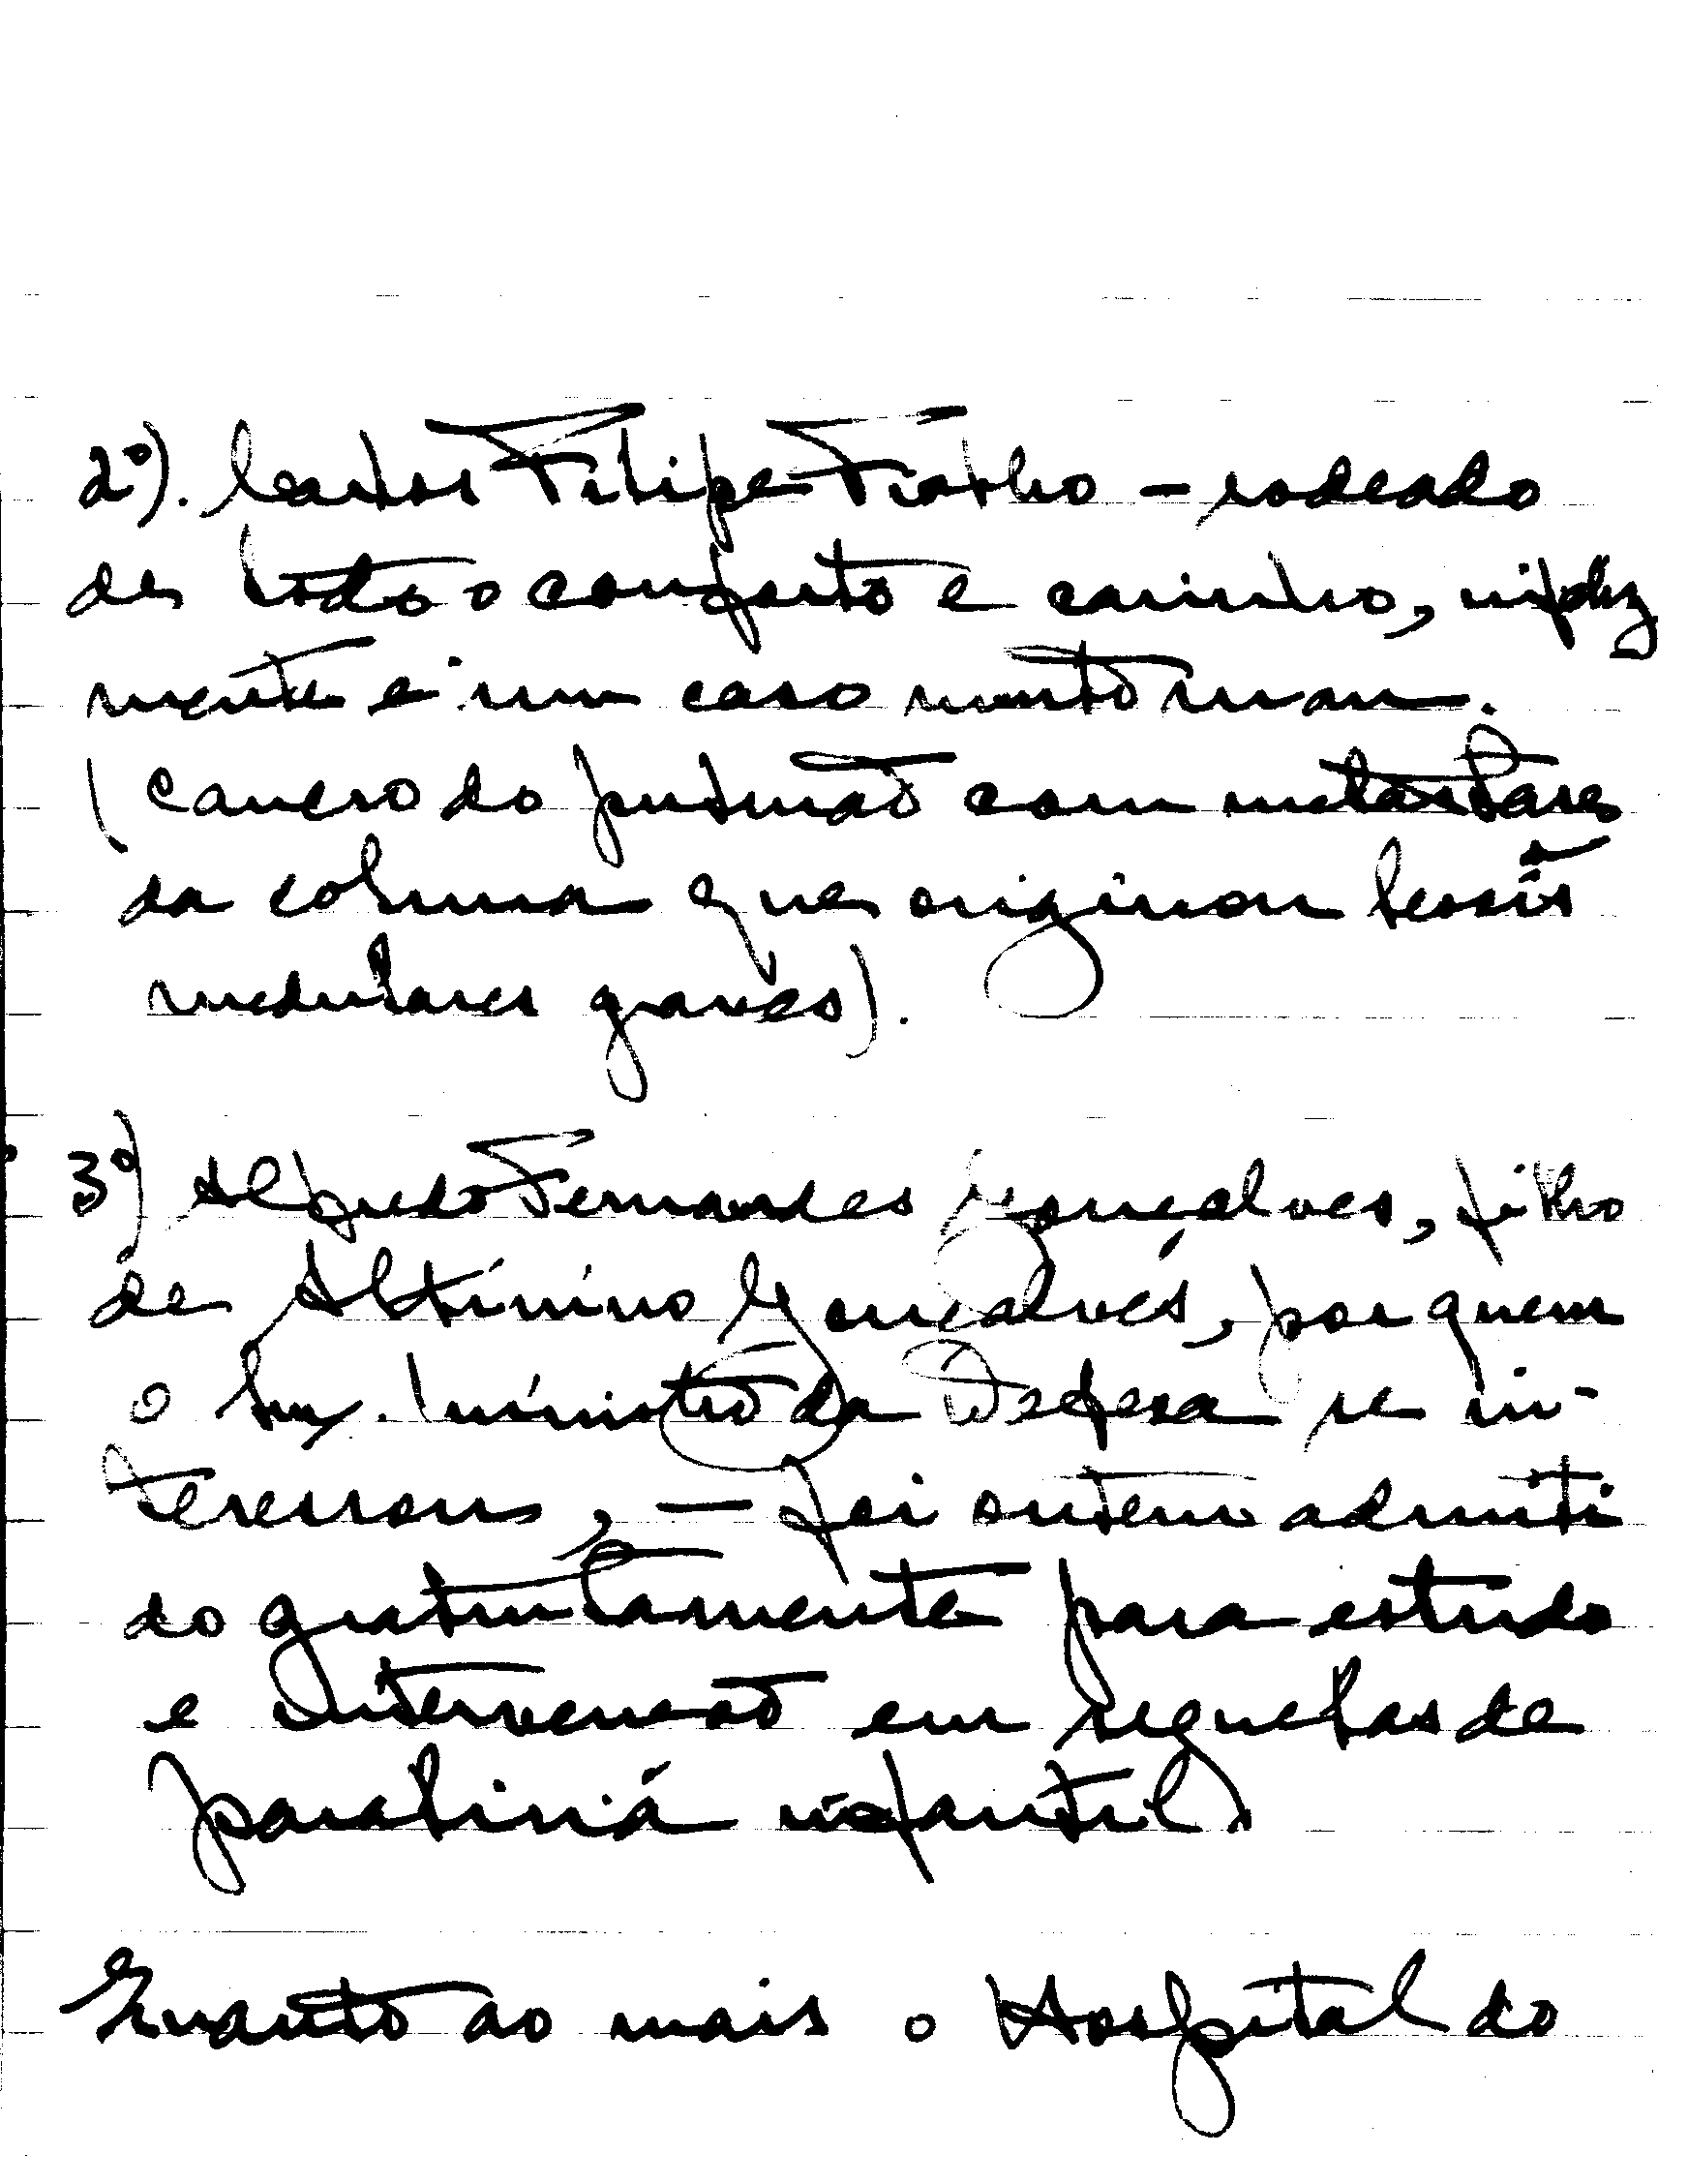 2º). Carlos Filipe Fialho – rodeado
de todo o conforto e carinho, infeliz
mente é um caso muito mau.
(cancro do pulmão com metastases
da coluna que originou lesões
medulares graves).
3º) Alfredo Fernandes Gonçalves, filho
de Altínino Gonçalves, por quem
o Snr. Ministro da Defesa se in-
teressou, – foi ontem admiti
do gratuitamente para estudo
e intervenção em sequelas de
paralisia infantil.
Quanto ao mais o Hospital do